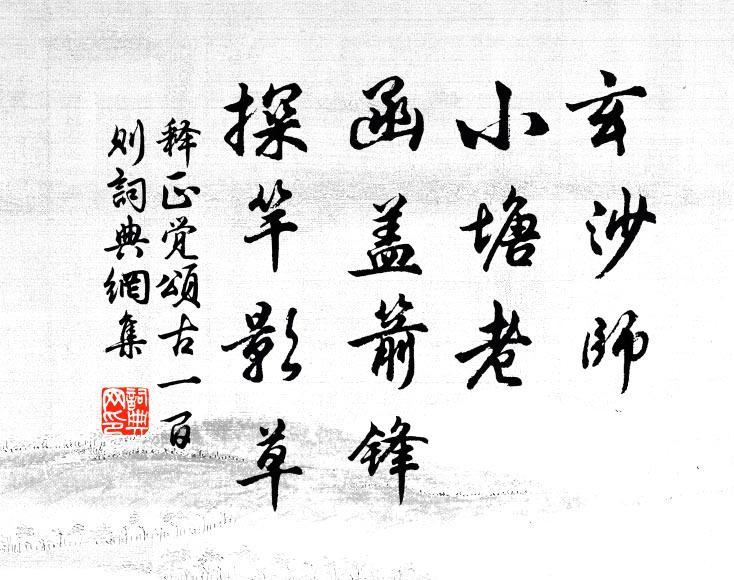 玄沙師
小塘老
函盖箭锋
探竿影草
释正觉頌古一百
则詞典網集
詞典
网印